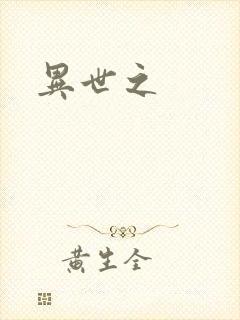 異世之
黃生全